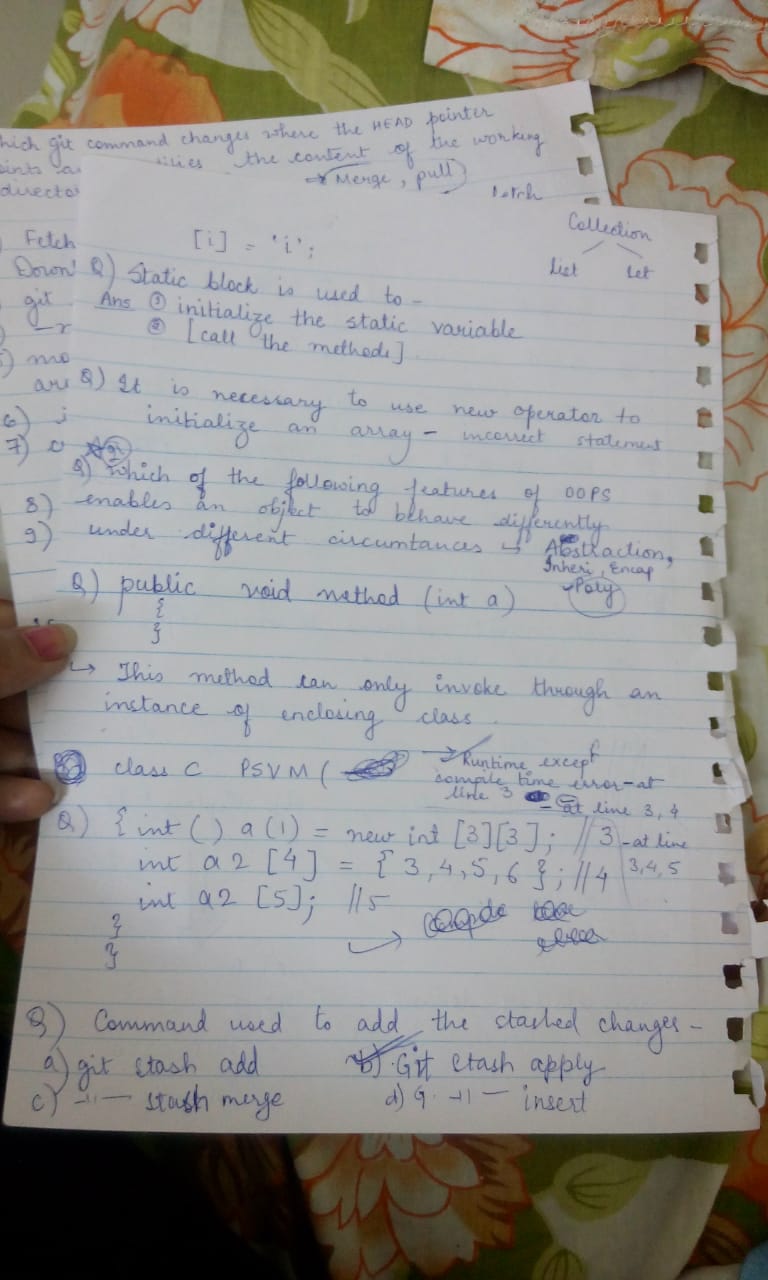 hich git command changes where the HEAD pointer
the content of the working
directo
→ Merge, pull
Fetch
Down
git
mo
are
6)
7)
8)
9)
Collection
List Set
[i] = 'i';
Q) Static block is used to -
Ans ① initialize the static variable
② [call the methods]
Q) It is necessary to use new operator to
initialize an array - incorrect statement
Q) Which of the following features of OOPS
enables an object to behave differently
under different circumtances ↳ Abstraction,
Inheri, Encap
Poly
Q) public void method (int a)
{
}
↳ This method can only invoke through an
instance of enclosing class
class C PSVM (
→ Runtime except
compile time error - at
line 3
- at line 3, 4
Q) { int () a (1) = new int [3][3]; //3 - at line
int a2 [4] = { 3, 4, 5, 6 }; //4 3, 4, 5
int a2 [5]; //5
}
}
Q) Command used to add the stashed changes -
a) git stash add b) Git stash apply
c) -11- stash merge d) G. -11- insert